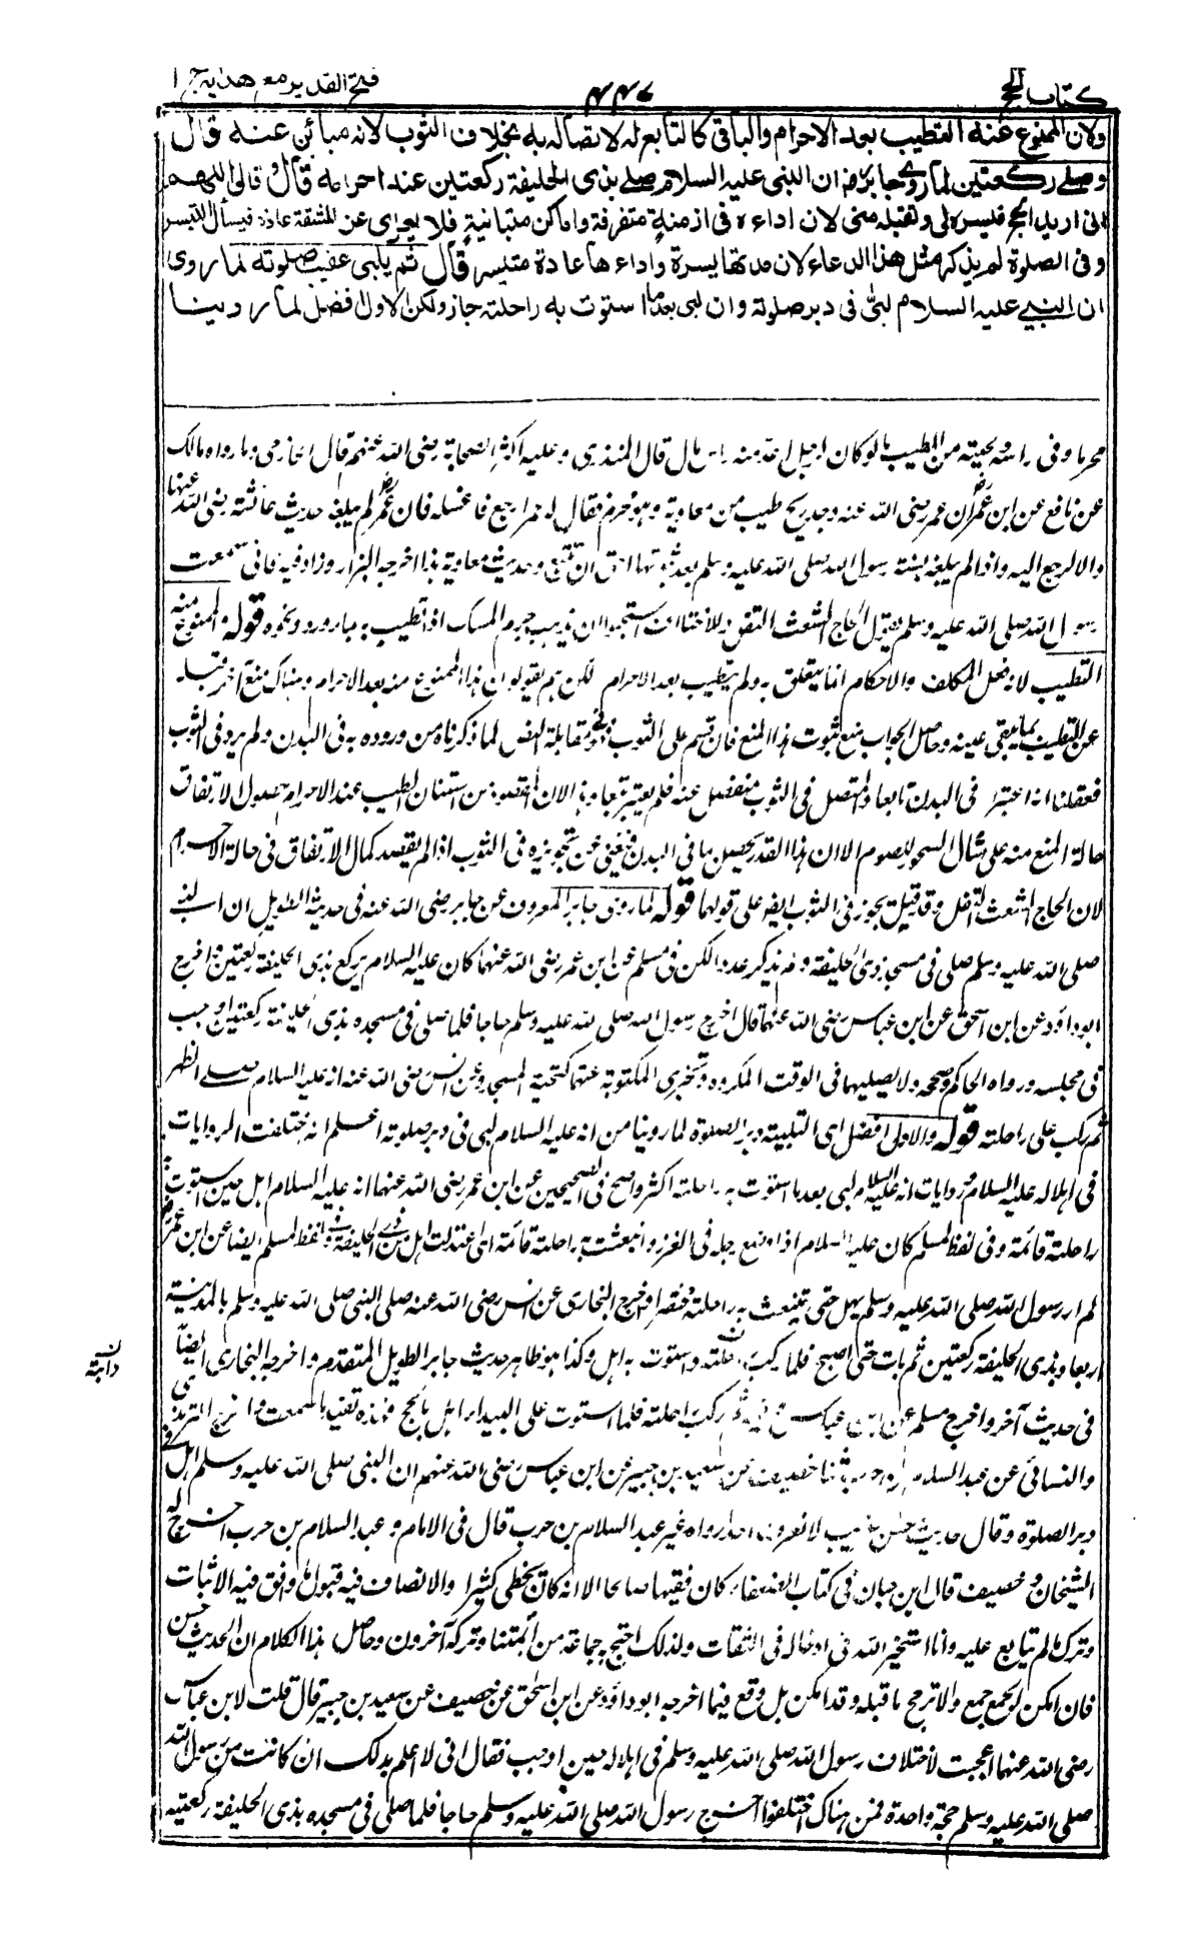 كتاب الحج
٤٤٧
فتح القدير مع هدايه ج ١
ولان الممنوع عنه التطيب بعد الاحرام والباقى كالتابع له لاتصاله به بخلاف الثوب لانه مبائن عنه قال
وصلى ركعتين لما روى جابر رض ان النبى عليه السلام صلى بذى الحليفة ركعتين عند احرامه قال وقال اللهم
انى اريد الحج فيسره لى وتقبله منى لان اداءه فى ازمنة متفرقة واماكن متبائنة فلا يعرى عن المشقة عادة فيسأل التيسير
وفى الصلوة لم يذكر مثل هذا الدعاء لان مدتها يسيرة واداءها عادة متيسر قال ثم يلبى عقيب صلوته لما روى
ان النبى عليه السلام لبى فى دبر صلوته وان لبى بعد ما استوت به راحلته جاز ولكن الاول افضل لما روينا
قال المنذرى وعليه اكثر الصحابة رضى الله عنهم قال الحازمى وما رواه مالك
عن نافع عن ابن عمر ان عمر رضى الله عنه وجد ريح طيب من معاوية وهو محرم فقال له عمر ارجع فاغسله فان عمر رض لم يبلغه حديث عائشة رضى الله عنها
والا لرجع اليه واذا لم يبلغه فسنة رسول الله صلى الله عليه وسلم بعد ثبوتها احق ان تتبع وحديث معاوية هذا اخرجه البزار وزاد فيه فانى سمعت
رسول الله صلى الله عليه وسلم يقول الحاج الشعث التفل وللاختلاف استحبوا ان يذيب جرم المسك اذا تطيب به بماء ورد ونحوه قوله والممنوع منه
التطيب لانه فعل المكلف والاحكام انما يتعلق به ولم يتطيب بعد الاحرام لكن هم يقولون ان هذا الممنوع منه بعد الاحرام وهناك منع آخر قبله
عن التطيب بما يبقى عينه وحاصل الجواب منع ثبوت هذا المنع فان قستم على الثوب فهو فى مقابلة النص لما ذكرناه من وروده به فى البدن ولم يرد فى الثوب
فعقلنا انه اعتبر فى البدن تابعا والمتصل فى الثوب منفصل عنه فلم يعتبر تبعا وهذا لان المقصود من استنان الطيب عند الاحرام حصول الارتفاق
حالة المنع منه على مثال السحور للصوم الا ان هذا القدر يحصل بما فى البدن فيغنى عن تجويزه فى الثوب اذا لم يقصد كمال الارتفاق فى حالة الاحرام
لان الحاج الشعث التفل وقد قيل يجوز فى الثوب ايضا على قولهما قوله لما روى جابر المعروف عن جابر رضى الله عنه فى حديث الطويل ان النبى
صلى الله عليه وسلم صلى فى مسجد ذى الحليفة ولم يذكر عددا لكن فى مسلم عن ابن عمر رضى الله عنهما كان عليه السلام يركع بذى الحليفة ركعتين واخرج
ابو داؤد عن ابن اسحق عن ابن عباس رضى الله عنهما قال خرج رسول الله صلى الله عليه وسلم حاجا فلما صلى فى مسجده بذى الحليفة ركعتيه اوجب
فى مجلسه ورواه الحاكم وصححه ولا يصليهما فى الوقت المكروه وتجزى المكتوبة عنهما كتحية المسجد وعن انس رضى الله عنه انه عليه السلام صلى الظهر
ثم ركب على راحلته قوله والاول افضل اى التلبية دبر الصلوة لما روينا من انه عليه السلام لبى فى دبر صلوته اعلم انه اختلفت الروايات
فى اهلاله عليه السلام وروايات انه عليه السلام لبى بعد ما استوت به راحلته اكثر واصح فى الصحيحين عن ابن عمر رضى الله عنهما انه عليه السلام اهل حين استوت به
راحلته قائمة وفى لفظ لمسلم كان عليه السلام اذا وضع رجله فى الغرز وانبعثت به راحلته قائمة اهل من ذى الحليفة وفى لفظ لمسلم ايضا عن ابن عمر
لم ار رسول الله صلى الله عليه وسلم يهل حتى تنبعث به راحلته مختصرا واخرج البخارى عن انس رضى الله عنه صلى النبى صلى الله عليه وسلم بالمدينة
اربعا وبذى الحليفة ركعتين ثم بات حتى اصبح فلما ركب راحلته واستوت به اهل وكذا هو ظاهر حديث جابر الطويل المتقدم واخرجه البخارى ايضا
فى حديث آخر واخرج مسلم عن ابن عباس ثم ركب راحلته فلما استوت على البيداء اهل بالحج فهذه تفيد ما سمعت واخرج الترمذى
والنسائى عن عبد السلام بن حرب ثنا خصيف عن سعيد بن جبير عن ابن عباس رضى الله عنهم ان النبى صلى الله عليه وسلم اهل فى
دبر الصلوة وقال حديث حسن غريب لا نعرف احدا رواه غير عبد السلام بن حرب قال فى الامام وعبد السلام بن حرب اخرج له
الشيخان وخصيف قال ابن حبان فى كتاب الضعفاء كان فقيها صالحا الا انه كان يخطى كثيرا والانصاف فيه قبول ما وافق فيه الاثبات
وترك ما لم يتابع عليه وانا استخير الله فى ادخاله فى الثقات ولذلك احتج به جماعة من أئمتنا وتركه آخرون وحاصل هذا الكلام ان الحديث حسن
فان امكن الجمع جمع والا ترجح ما قبله وقد امكن بل وقع فيما اخرجه ابو داؤد عن ابن اسحق عن خصيف عن سعيد بن جبير قال قلت لابن عباس
رضى الله عنهما عجبت لاختلاف رسول الله صلى الله عليه وسلم فى اهلاله حين اوجب فقال انى لا علم بذلك ان كانت من رسول الله
صلى الله عليه وسلم حجة واحدة فمن هناك اختلفوا خرج رسول الله صلى الله عليه وسلم حاجا فلما صلى فى مسجده بذى الحليفة ركعتيه